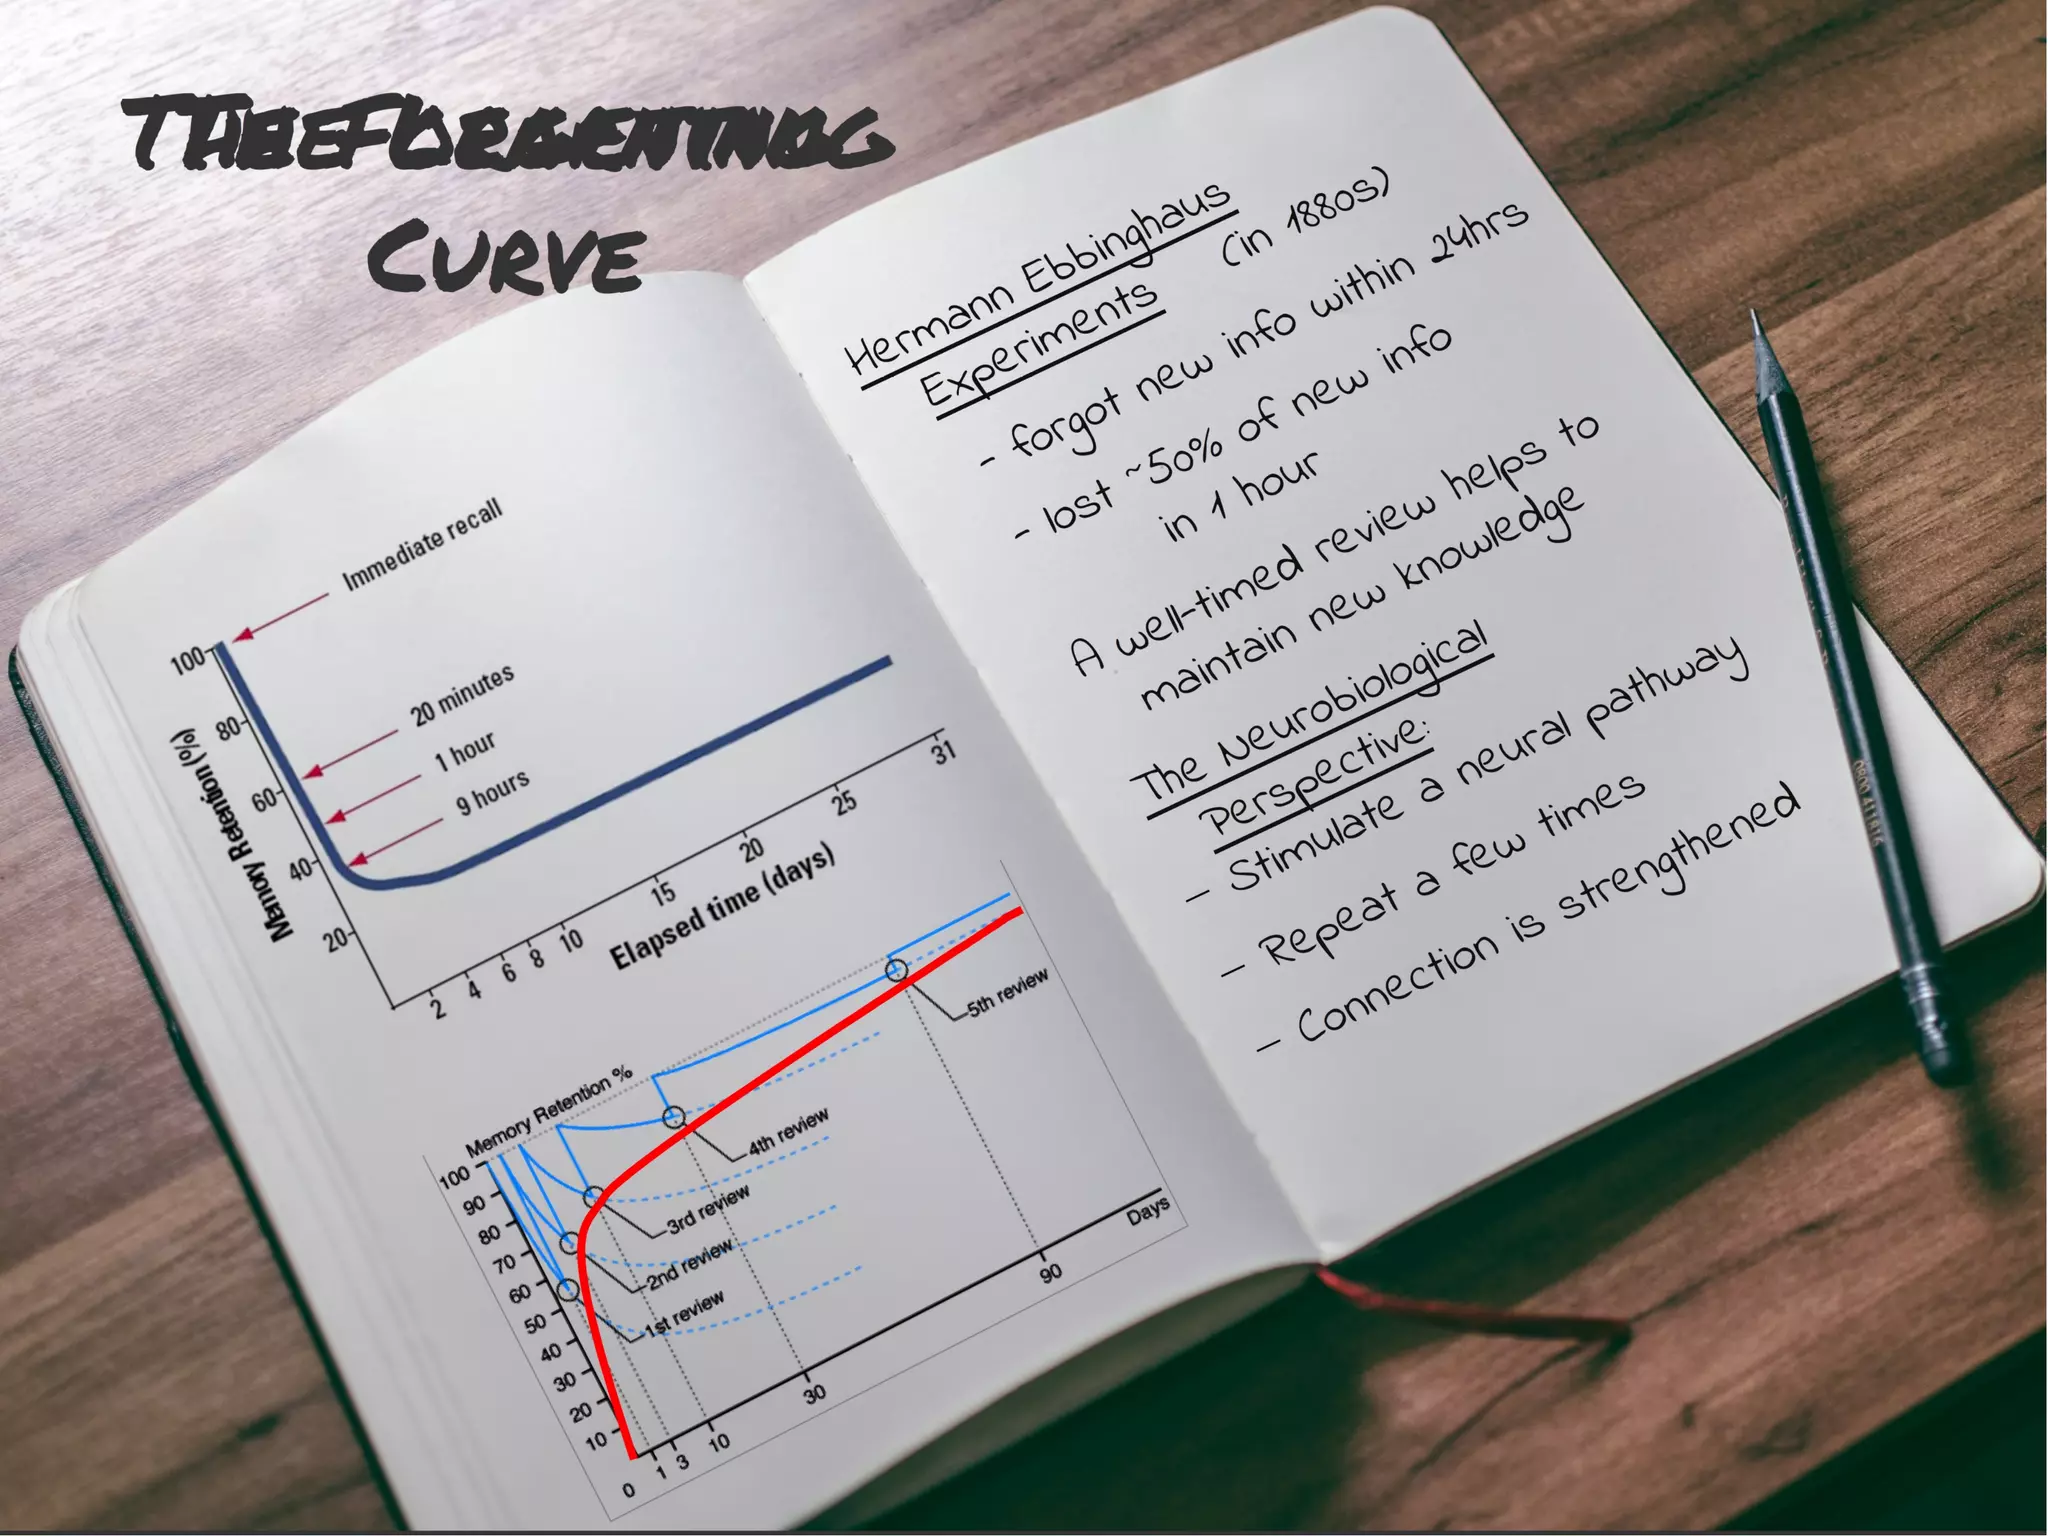 The Forgetting
Curve
Immediate recall
20 minutes
1 hour
9 hours
Memory Retention (%)
100
80
60
40
20
2 4 6 8 10 15 20 25 31
Elapsed time (days)
Memory Retention %
100
90
80
70
60
50
40
30
20
10
0 1 3 10 30 90
Days
1st review
2nd review
3rd review
4th review
5th review
Hermann Ebbinghaus
Experiments (in 1880s)
- forgot new info within 24hrs
- lost ~50% of new info
in 1 hour
A well-timed review helps to
maintain new knowledge
The Neurobiological
Perspective:
- Stimulate a neural pathway
- Repeat a few times
- Connection is strengthened